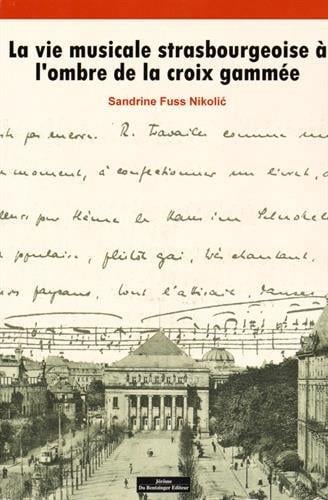 La vie musicale strasbourgeoise à
l'ombre de la croix gammée
Sandrine Fuss Nikolić
pas encore. R. Travaille comme un
moment, à confectionner un livret, d'
pour thème le Hans im Schnokeloch
populaire, plutôt gai, très chantant,
paysans, tout l'attirait, danses
Jérôme
Do Bentzinger Editeur